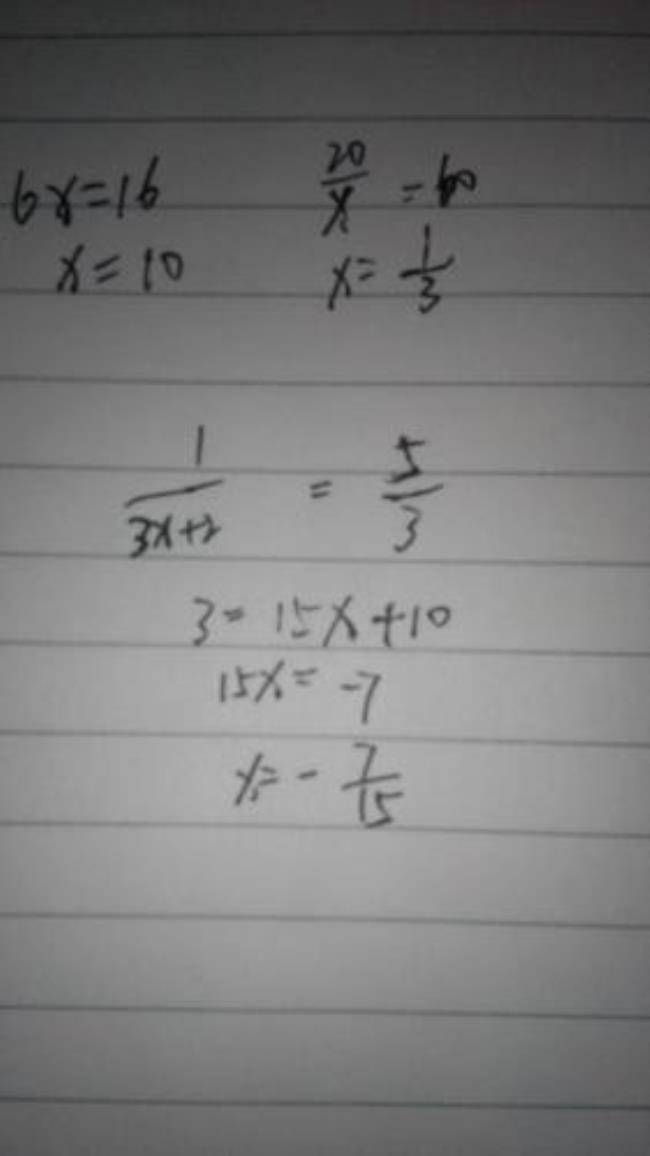 6x=16
x=10
20/x=60
x=1/3
1/(3x+2) = 5/3
3=15x+10
15x=-7
x=-7/15